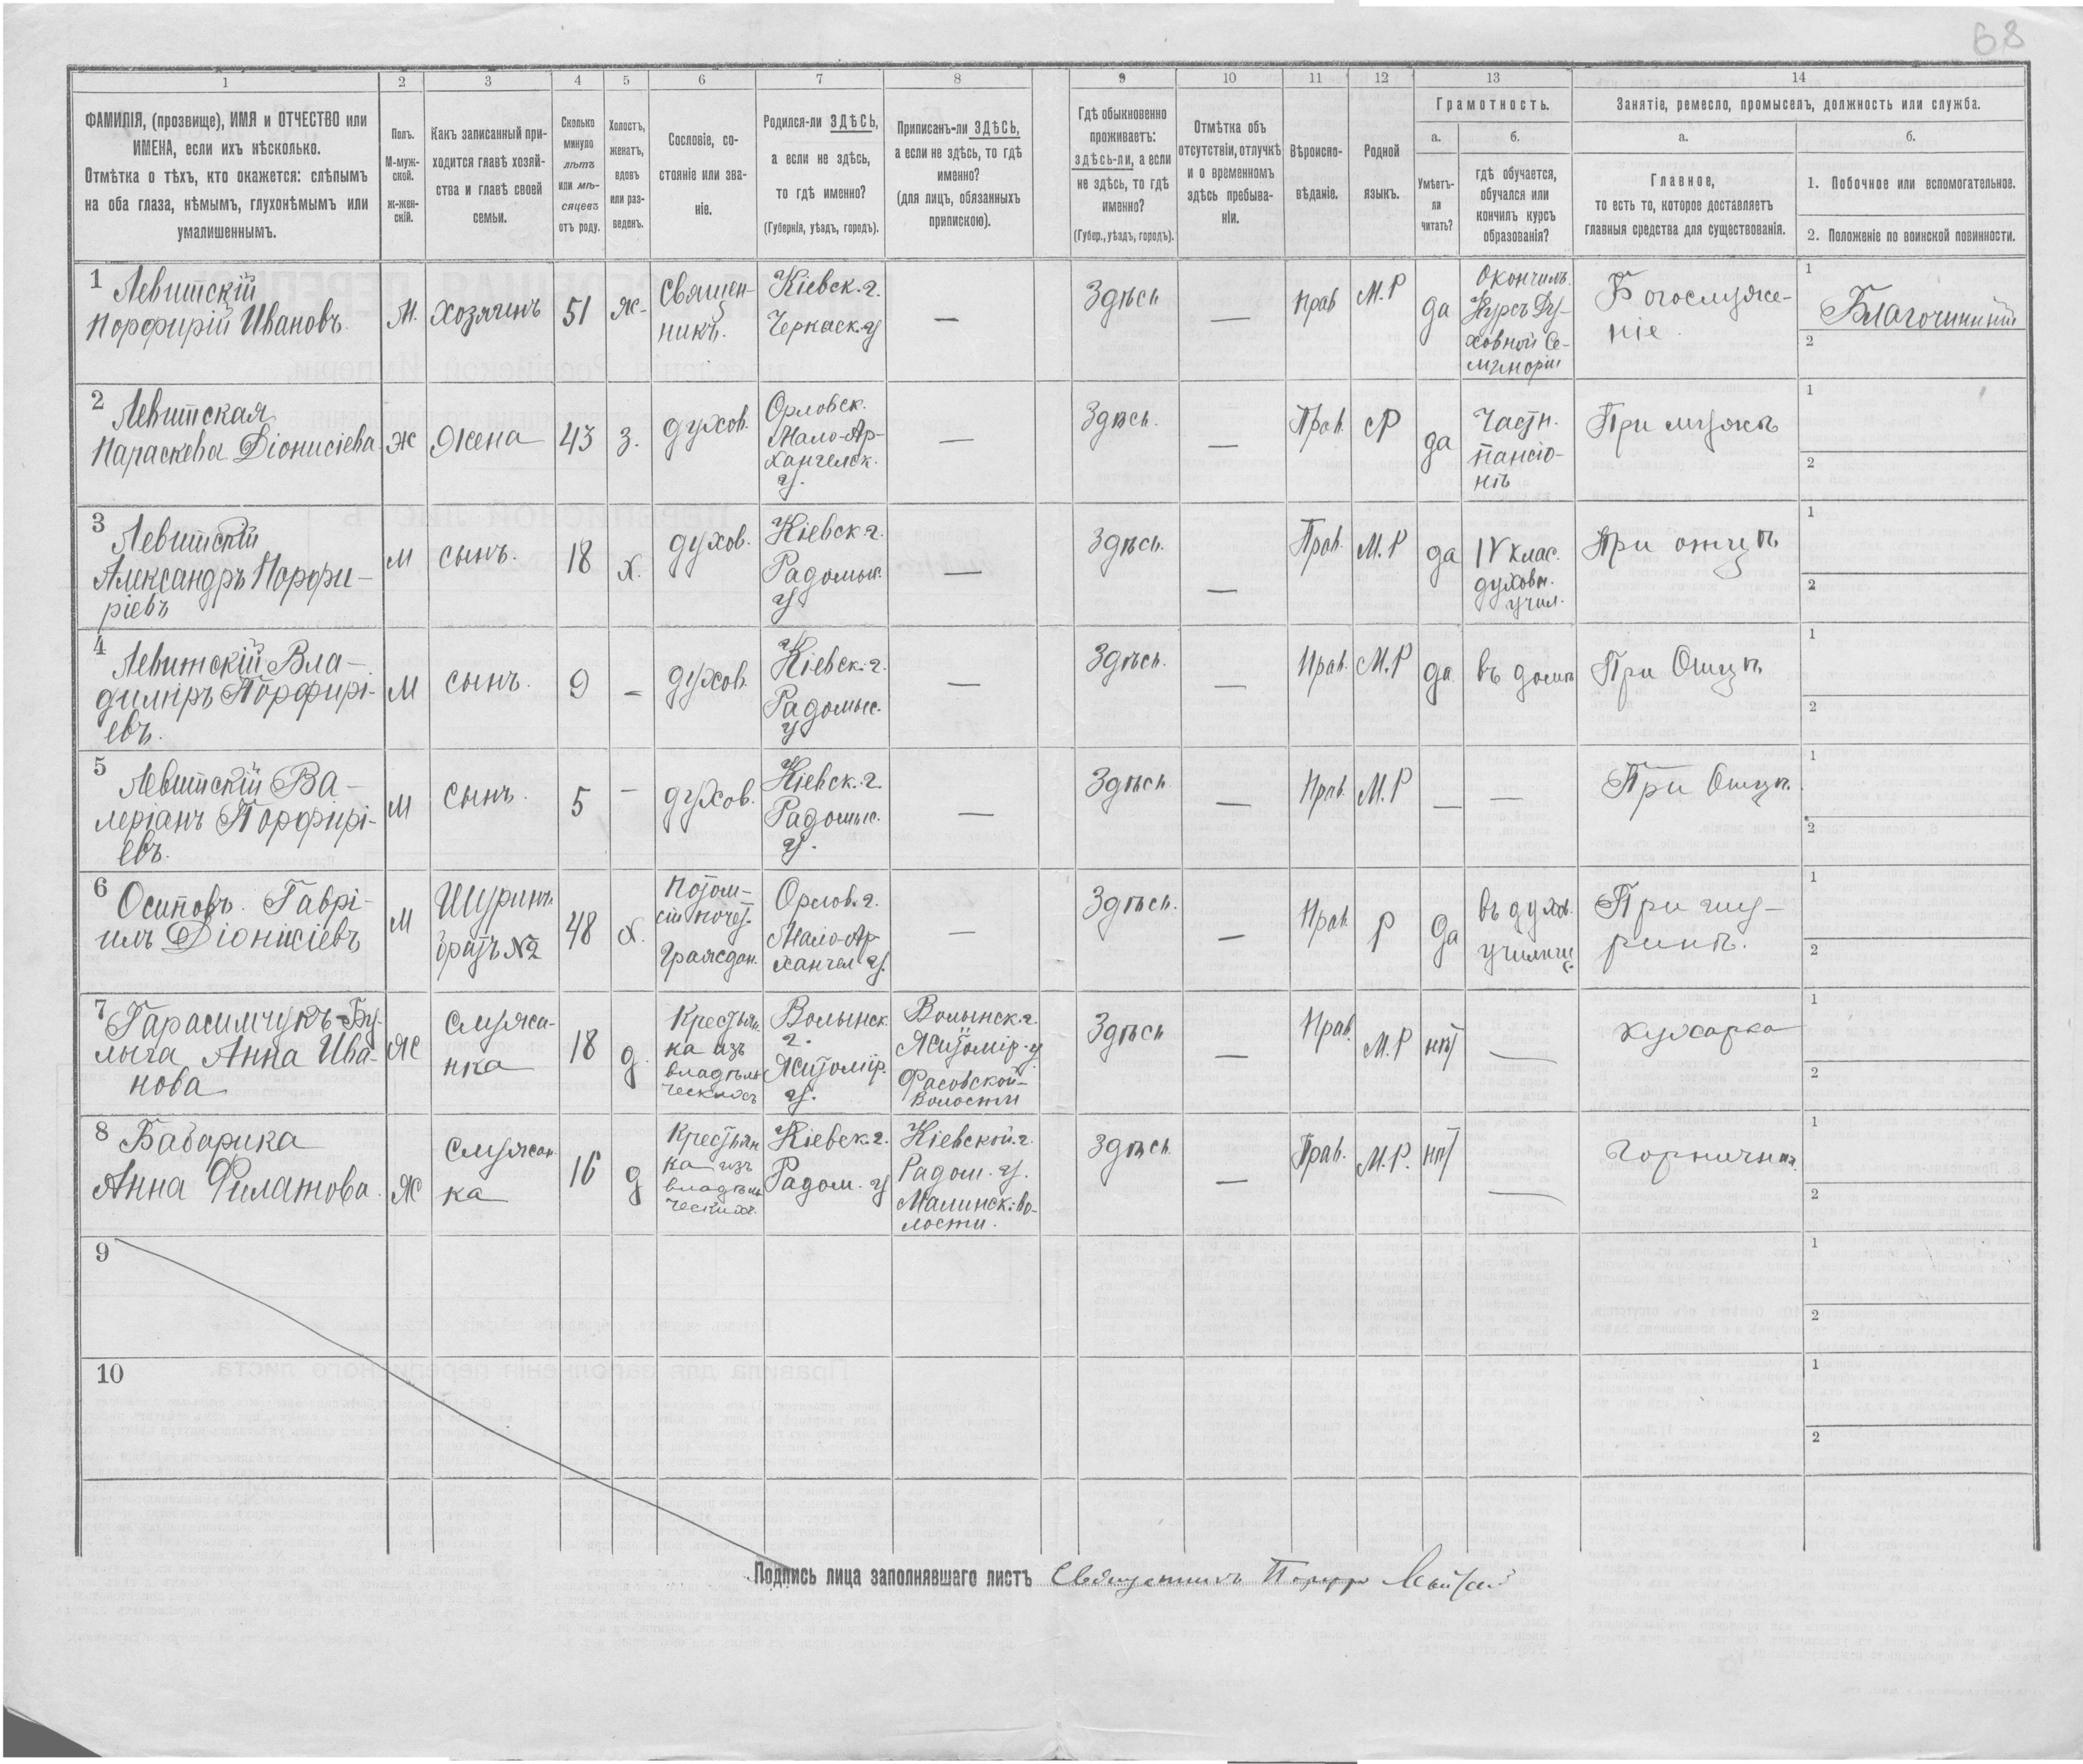 68
1 2 3 4 5 6 7 8 9 10 11 12 13 14
ФАМИЛІЯ, (прозвище), ИМЯ и ОТЧЕСТВО или
ИМЕНА, если ихъ нѣсколько.
Отмѣтка о тѣхъ, кто окажется: слѣпымъ
на оба глаза, нѣмымъ, глухонѣмымъ или
умалишеннымъ.
Полъ.
М-муж-
ской.
ж-жен-
скій.
Какъ записанный при-
ходится главѣ хозяй-
ства и главѣ своей
семьи.
Сколько
минуло
лѣтъ
или мѣ-
сяцевъ
отъ роду.
Холостъ,
женатъ,
вдовъ
или раз-
веденъ.
Сословіе, со-
стояніе или зва-
ніе.
Родился-ли ЗДѢСЬ,
а если не здѣсь,
то гдѣ именно?
(Губернія, уѣздъ, городъ).
Приписанъ-ли ЗДѢСЬ,
а если не здѣсь, то гдѣ
именно?
(для лицъ, обязанныхъ
припискою).
Гдѣ обыкновенно
проживаетъ:
здѣсь-ли, а если
не здѣсь, то гдѣ
именно?
(Губер., уѣздъ, городъ).
Отмѣтка объ
отсутствіи, отлучкѣ
и о временномъ
здѣсь пребыва-
ніи.
Вѣроиспо-
вѣданіе.
Родной
языкъ.
Грамотность.
а.
Умѣетъ-
ли
читать?
б.
гдѣ обучается,
обучался или
кончилъ курсъ
образованія?
Занятіе, ремесло, промыселъ, должность или служба.
а.
Главное,
то есть то, которое доставляетъ
главныя средства для существованія.
б.
1. Побочное или вспомогательное.
2. Положеніе по воинской повинности.
1
Левитскій
Порфирій Ивановъ.
М.
хозяинъ
51
ж-
Священ-
никъ.
Кіевск. г.
Черкаск. у
—
Здѣсь
—
Прав
М. Р
да
Окончилъ
Курсъ Ду-
ховной Се-
минаріи
Богослуже-
ніе.
1
Благочинный
2
2
Левитская
Параскева Діонисіева
ж
жена
43
з.
духов.
Орловск.
Мало-Ар-
хангелск.
у.
—
Здѣсь.
—
Прав.
Р
да
Частн.
пансіо-
нѣ
При мужѣ
1
2
3
Левитскій
Александръ Порфи-
ріевъ
М
сынъ.
18
х.
духов.
Кіевск г.
Радомыс.
у
—
Здѣсь.
—
Прав.
М. Р
да
IV клас.
духовн.
учил.
При отцѣ
1
2
4
Левитскій Вла-
диміръ Порфирі-
евъ.
М
сынъ.
9
-
духов.
Кіевск. г.
Радомыс.
у
—
Здѣсь.
—
Прав.
М. Р
да
въ домѣ
При Отцѣ
1
2
5
Левитскій Ва-
леріанъ Порфирі-
евъ.
М
сынъ.
5
-
духов.
Кіевск. г.
Радомыс.
у.
—
Здѣсь
—
Прав.
М. Р
—
—
При Отцѣ.
1
2
6
Осиповъ. Гаврі-
илъ Діонисіевъ
М
Шуринъ
братъ №2
48
х.
Потом-
ст почет.
Граждан.
Орлов. г.
Мало-Ар-
хангел у.
—
Здѣсь.
—
Прав.
Р
да
въ духов.
училищ.
При шу-
ринѣ.
1
2
7
Гарасимчукъ-Бу-
лыга Анна Ива-
нова
Ж
Служа-
нка
18
д.
Крестьян
ка изъ
владѣль
ческихъ
Волынск
г.
Житомір.
у.
Волынск. г.
Житомір. у
Фасовской
Волости
Здѣсь
—
Прав.
М. Р
нѣт
—
кухарка
1
2
8
Бабарика
Анна Филатова.
Ж
Служан
ка
16
д
Крестьян
ка изъ
владѣль
ческихъ.
Кіевск. г.
Радом. у
Кіевской. г.
Радом. у.
Малинск. во-
лости.
Здѣсь
—
Прав.
М. Р.
нѣт
—
Горничная.
1
2
9
1
2
10
1
2
Подпись лица заполнявшаго листъ Священникъ Порфир Левитскій